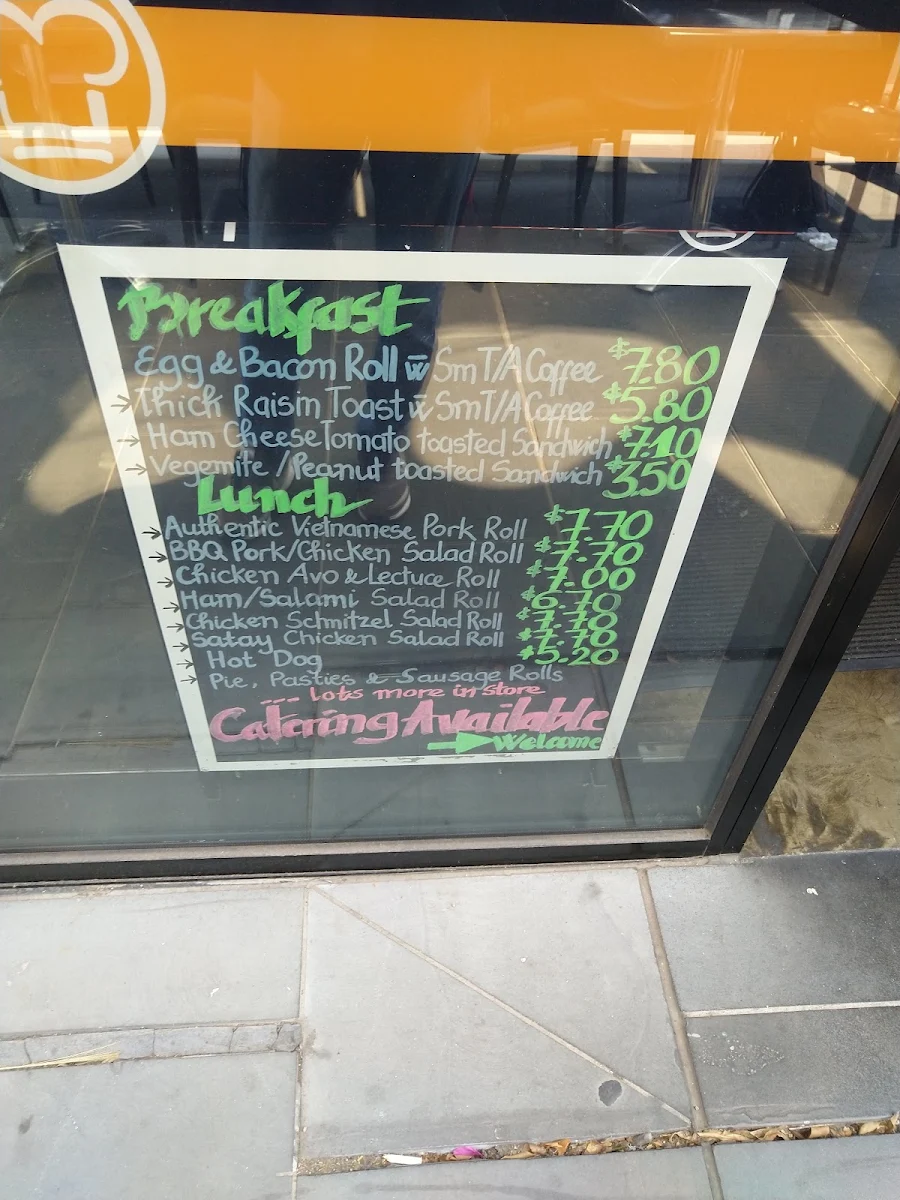 Breakfast
Egg & Bacon Roll w̄ Sm T/A Coffee $7.80
Thick Raisin Toast w̄ Sm T/A Coffee $5.80
Ham Cheese Tomato toasted Sandwich $7.10
Vegemite / Peanut toasted Sandwich $3.50
Lunch
Authentic Vietnamese Pork Roll $7.70
BBQ Pork/Chicken Salad Roll $7.70
Chicken Avo & Lectuce Roll $7.00
Ham/Salami Salad Roll $6.70
Chicken Schnitzel Salad Roll $7.70
Satay Chicken Salad Roll $7.70
Hot Dog $5.20
Pie, Pasties & Sausage Rolls
... lots more in store
Catering Available
Welcome